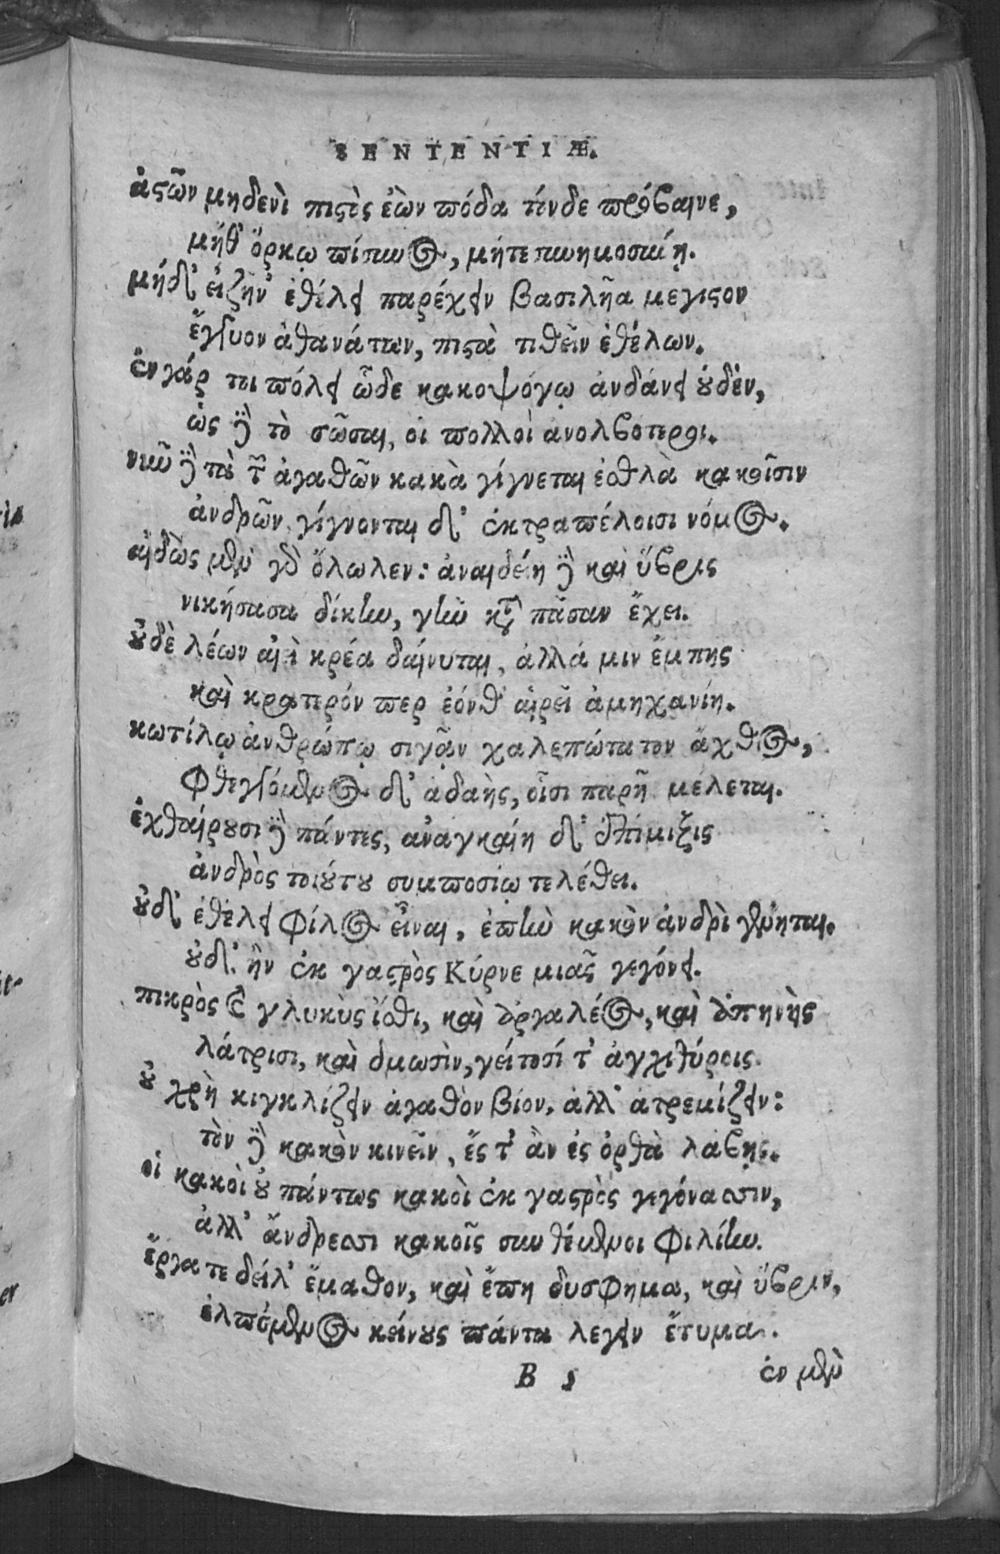 SENTENTIÆ.
ἀςῶν μηδενὶ πιςὶς ἐὼν πόδα τόνδε πρόβαινε,
μήθ' ὅρκῳ πίσυνος, μήτε συνημοσύνῃ.
μήδ' εἰ ζῆν' ἐθέλει παρέχειν βασιλῆα μεγιςον
ἔγγυον ἀθανάτων, πιςὰ τιθεῖν ἐθέλων.
ἐν γάρ τοι πόλει ὧδε κακοψόγῳ ἁνδάνει οὐδὲν,
ὡς δὲ τὸ σῶσαι, οἱ πολλοὶ ἀνολβότεροι.
νῦν δὲ τὰ τῶν ἀγαθῶν κακὰ γίγνεται ἐσθλὰ κακοῖσιν
ἀνδρῶν, γίγνονται δ' ἐκτραπέλοισι νόμος.
αἰδὼς μὲν γὸ ὄλωλεν: ἀναιδείη δὲ καὶ ὕβρις
νικήσασα δίκην, γῆν κτ πᾶσαν ἔχει.
οὐδὲ λέων αἰεὶ κρέα δαίνυται, ἀλλά μιν ἔμπης
καὶ κρατερόν περ ἐόνθ' αἱρεῖ ἀμηχανίη.
κωτίλῳ ἀνθρώπῳ σιγᾷν χαλεπώτατον ἄχθος,
φθεγγόμενος δ' ἀδαὴς, οἷσι παρῇ μέλεται.
ἐχθαίρουσι δὲ πάντες, ἀναγκαίη δ' ἐπίμιξις
ἀνδρὸς τοιούτου συμποσίῳ τελέθει.
οὐδ' ἐθέλει φίλος εἶναι, ἐπὴν κακὸν ἀνδρὶ γένηται.
οὐδ' ἢν ἐκ γαςρὸς Κύρνε μιᾶς γεγόνει.
πικρὸς καὶ γλυκὺς ἴσθι, καὶ ἀργαλέος, καὶ ἀπηνὴς
λάτρισι, καὶ δμωσὶν, γείτοσί τ' ἀγχιθύροις.
οὐ χρὴ κιγκλίζειν ἀγαθὸν βίον, ἀλλ' ἀτρεμίζειν:
τὸν δὲ κακὸν κινεῖν, ἔς τ' ἂν ἐς ὀρθὰ λάβῃς.
οἱ κακοὶ οὐ πάντως κακοὶ ἐκ γαςρὸς γεγόνασιν,
ἀλλ' ἄνδρεσσι κακοῖς συνθέμενοι φιλίην.
ἔργα τε δείλ' ἔμαθον, καὶ ἔπη δυσφημα, καὶ ὕβριν,
ἐλπόμενος κείνους πάντα λεγειν ἔτυμα.
B 5 ἐν μὲν